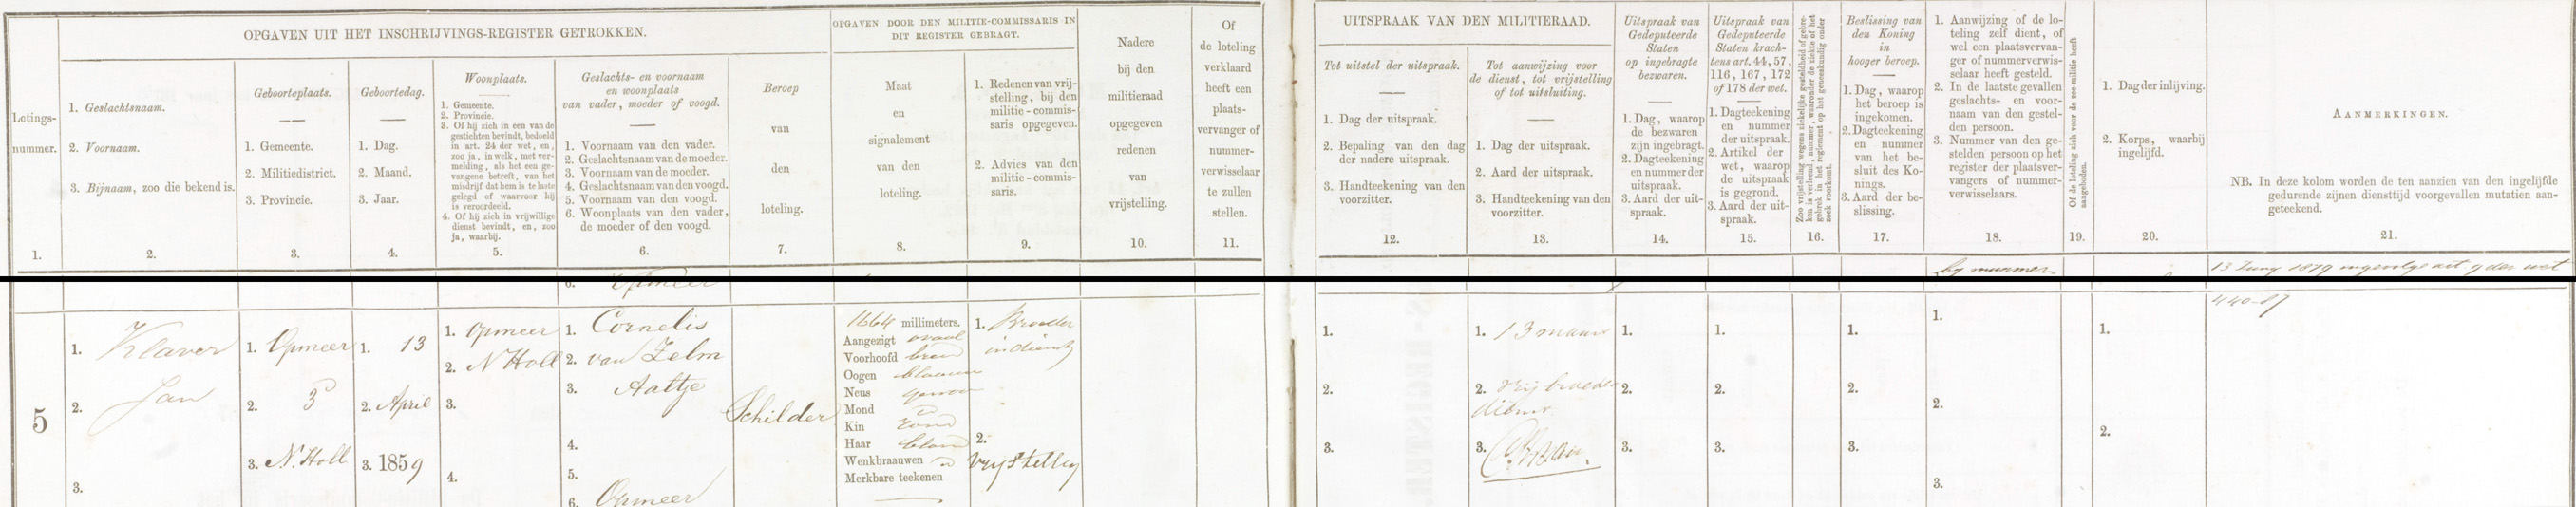 OPGAVEN UIT HET INSCHRIJVINGS-REGISTER GETROKKEN.
OPGAVEN DOOR DEN MILITIE-COMMISSARIS IN
DIT REGISTER GEBRAGT.
Lotings-
nummer.
1.
1. Geslachtsnaam.
2. Voornaam.
3. Bijnaam, zoo die bekend is.
2.
Geboorteplaats.
1. Gemeente.
2. Militiedistrict.
3. Provincie.
3.
Geboortedag.
1. Dag.
2. Maand.
3. Jaar.
4.
Woonplaats.
1. Gemeente.
2. Provincie.
3. Of hij zich in een van de
gestichten bevindt, bedoeld
in art. 24 der wet, en,
zoo ja, in welk, met ver-
melding, als het een ge-
vangene betreft, van het
misdrijf dat hem is te laste
gelegd of waarvoor hij
is veroordeeld.
4. Of hij zich in vrijwillige
dienst bevindt, en, zoo
ja, waarbij.
5.
Geslachts- en voornaam
en woonplaats
van vader, moeder of voogd.
1. Voornaam van den vader.
2. Geslachtsnaam van de moeder.
3. Voornaam van de moeder.
4. Geslachtsnaam van den voogd.
5. Voornaam van den voogd.
6. Woonplaats van den vader,
de moeder of den voogd.
6.
Beroep
van
den
loteling.
7.
Maat
en
signalement
van den
loteling.
8.
1. Redenen van vrij-
stelling, bij den
militie-commis-
saris opgegeven.
2. Advies van den
militie-commis-
saris.
9.
Nadere
bij den
militieraad
opgegeven
redenen
van
vrijstelling.
10.
Of
de loteling
verklaard
heeft een
plaats-
vervanger of
nummer-
verwisselaar
te zullen
stellen.
11.
UITSPRAAK VAN DEN MILITIERAAD.
Tot uitstel der uitspraak.
1. Dag der uitspraak.
2. Bepaling van den dag
der nadere uitspraak.
3. Handteekening van den
voorzitter.
12.
Tot aanwijzing voor
de dienst, tot vrijstelling
of tot uitsluiting.
1. Dag der uitspraak.
2. Aard der uitspraak.
3. Handteekening van den
voorzitter.
13.
Uitspraak van
Gedeputeerde
Staten
op ingebragte
bezwaren.
1. Dag, waarop
de bezwaren
zijn ingebragt.
2. Dagteekening
en nummer der
uitspraak.
3. Aard der uit-
spraak.
14.
Uitspraak van
Gedeputeerde
Staten krach-
tens art. 44, 57,
116, 167, 172
of 178 der wet.
1. Dagteekening
en nummer
der uitspraak.
2. Artikel der
wet, waarop
de uitspraak
is gegrond.
3. Aard der uit-
spraak.
15.
Zoo vrijstelling wegens ziekelijke gesteldheid of gebre-
ken is verleend, nummer, waaronder de ziekte of het
gebrek in het reglement op het geneeskundig onder-
zoek voorkomt.
16.
Beslissing van
den Koning
in
hooger beroep.
1. Dag, waarop
het beroep is
ingekomen.
2. Dagteekening
en nummer
van het be-
sluit des Ko-
nings.
3. Aard der be-
slissing.
17.
1. Aanwijzing of de lo-
teling zelf dient, of
wel een plaatsvervan-
ger of nummerverwis-
selaar heeft gesteld.
2. In de laatste gevallen
geslachts- en voor-
naam van den gestel-
den persoon.
3. Nummer van den ge-
stelden persoon op het
register der plaatsver-
vangers of nummer-
verwisselaars.
18.
Of de loteling zich voor de zee-militie heeft
aangeboden.
19.
1. Dag der inlijving.
2. Korps, waarbij
ingelijfd.
20.
AANMERKINGEN.
NB. In deze kolom worden de ten aanzien van den ingelijfde
gedurende zijnen diensttijd voorgevallen mutatien aan-
geteekend.
21.
6. Opmeer
by nummer-
13 Juny 1879 ingevolge art 9 der wet
5
1. Klaver
2. Jan
3.
1. Opmeer
2. 3
3. N. Holl
1. 13
2. April
3. 1859
1. Opmeer
2. N Holl
3.
4.
1. Cornelis
2. van Zelm
3. Aaltje
4.
5.
6. Opmeer
Schilder
1664 millimeters.
Aangezigt ovaal
Voorhoofd breed
Oogen blaauw
Neus gewoon
Mond
Kin rond
Haar blond
Wenkbraauwen
Merkbare teekenen
1. Broeder
in dienst
2.
vrijstelling
1.
2.
3.
1. 13 maart
2. vrij broeder
dienst
3.
1.
2.
3.
1.
2.
3.
1.
2.
3.
1.
2.
3.
1.
2.
440-87